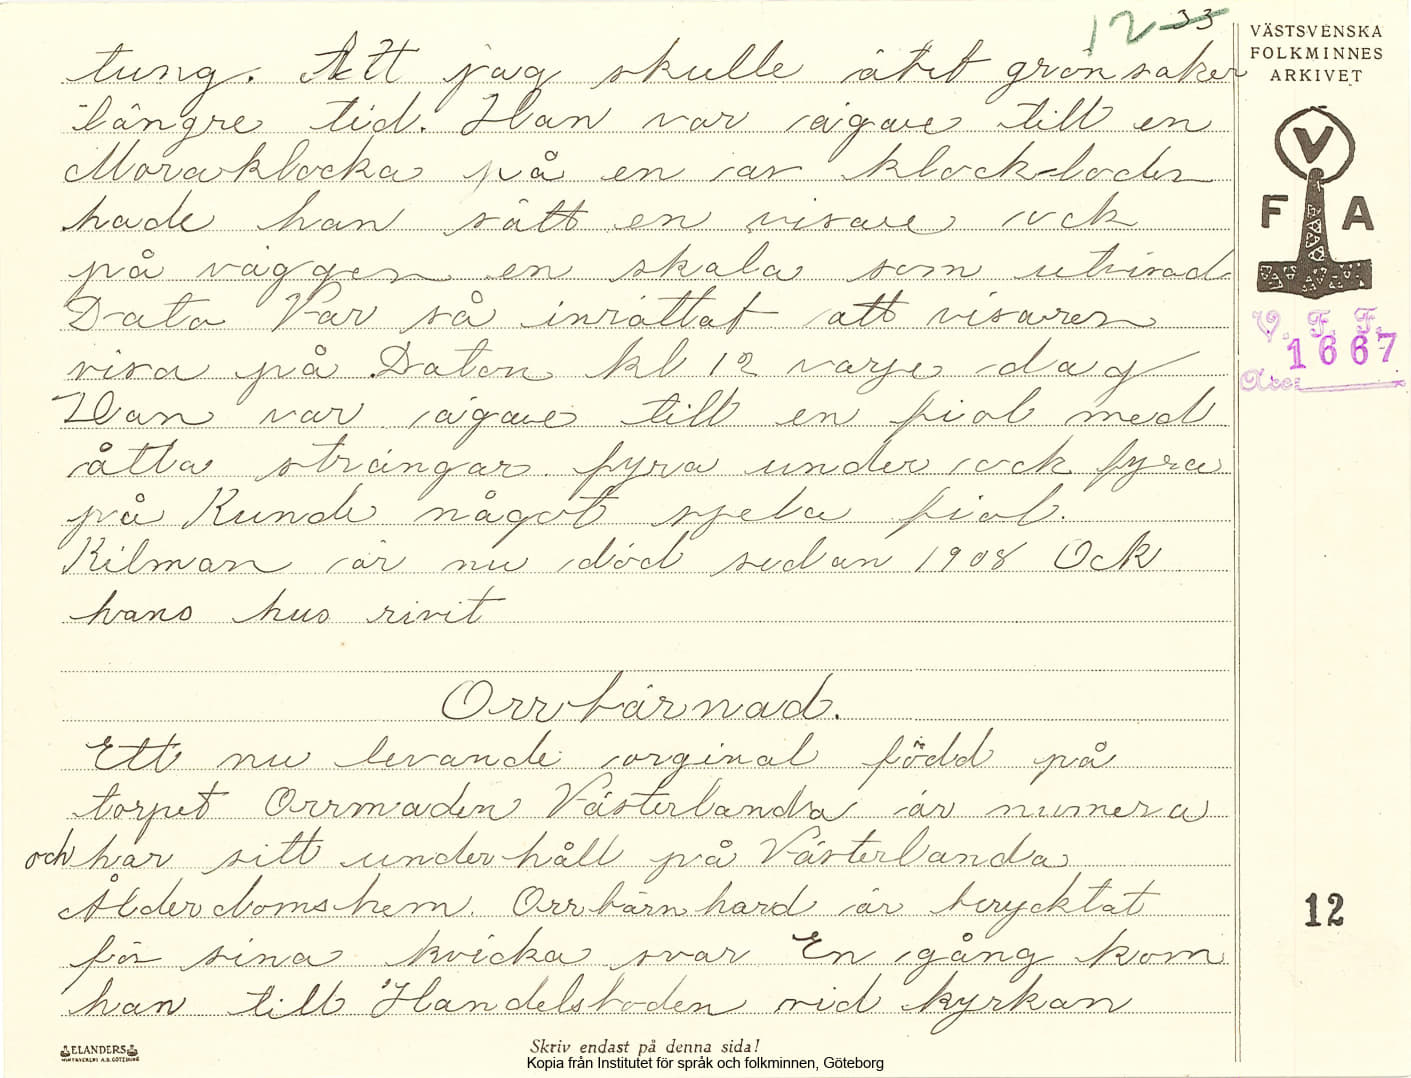 12 33
tung. Att jag skulle ätit grönsaker
längre tid. Han var ägare till en
Moraklocka på en av klockloden
hade han sått en visare ock
på väggen en skala som utvisad
Data Var så inrättat att visaren
visa på Daton kl 12 varje dag
Han var ägare till en fiol med
åtta strängar fyra under ock fyra
på Kunde något spela fiol.
Kilman är nu död sedan 1908 Ock
hans hus rivit
Orrbärnad.
Ett nu levande orginal född på
torpet Orrmaden Västerlanda är numera
och har sitt underhåll på Västerlanda
Ålderdomshem. Orrbärnhard är berycktat
för sina kvicka svar En gång kom
han till Handelsboden vid kyrkan
VÄSTSVENSKA
FOLKMINNES
ARKIVET
V
F A
V. F. F.
1667
12
ELANDERS
Skriv endast på denna sida!
Kopia från Institutet för språk och folkminnen, Göteborg